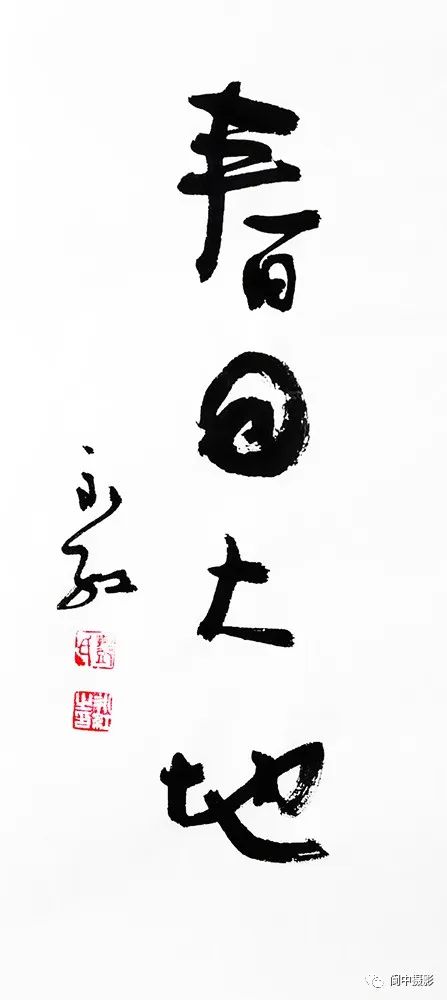 春回大地
永红
阆中摄影